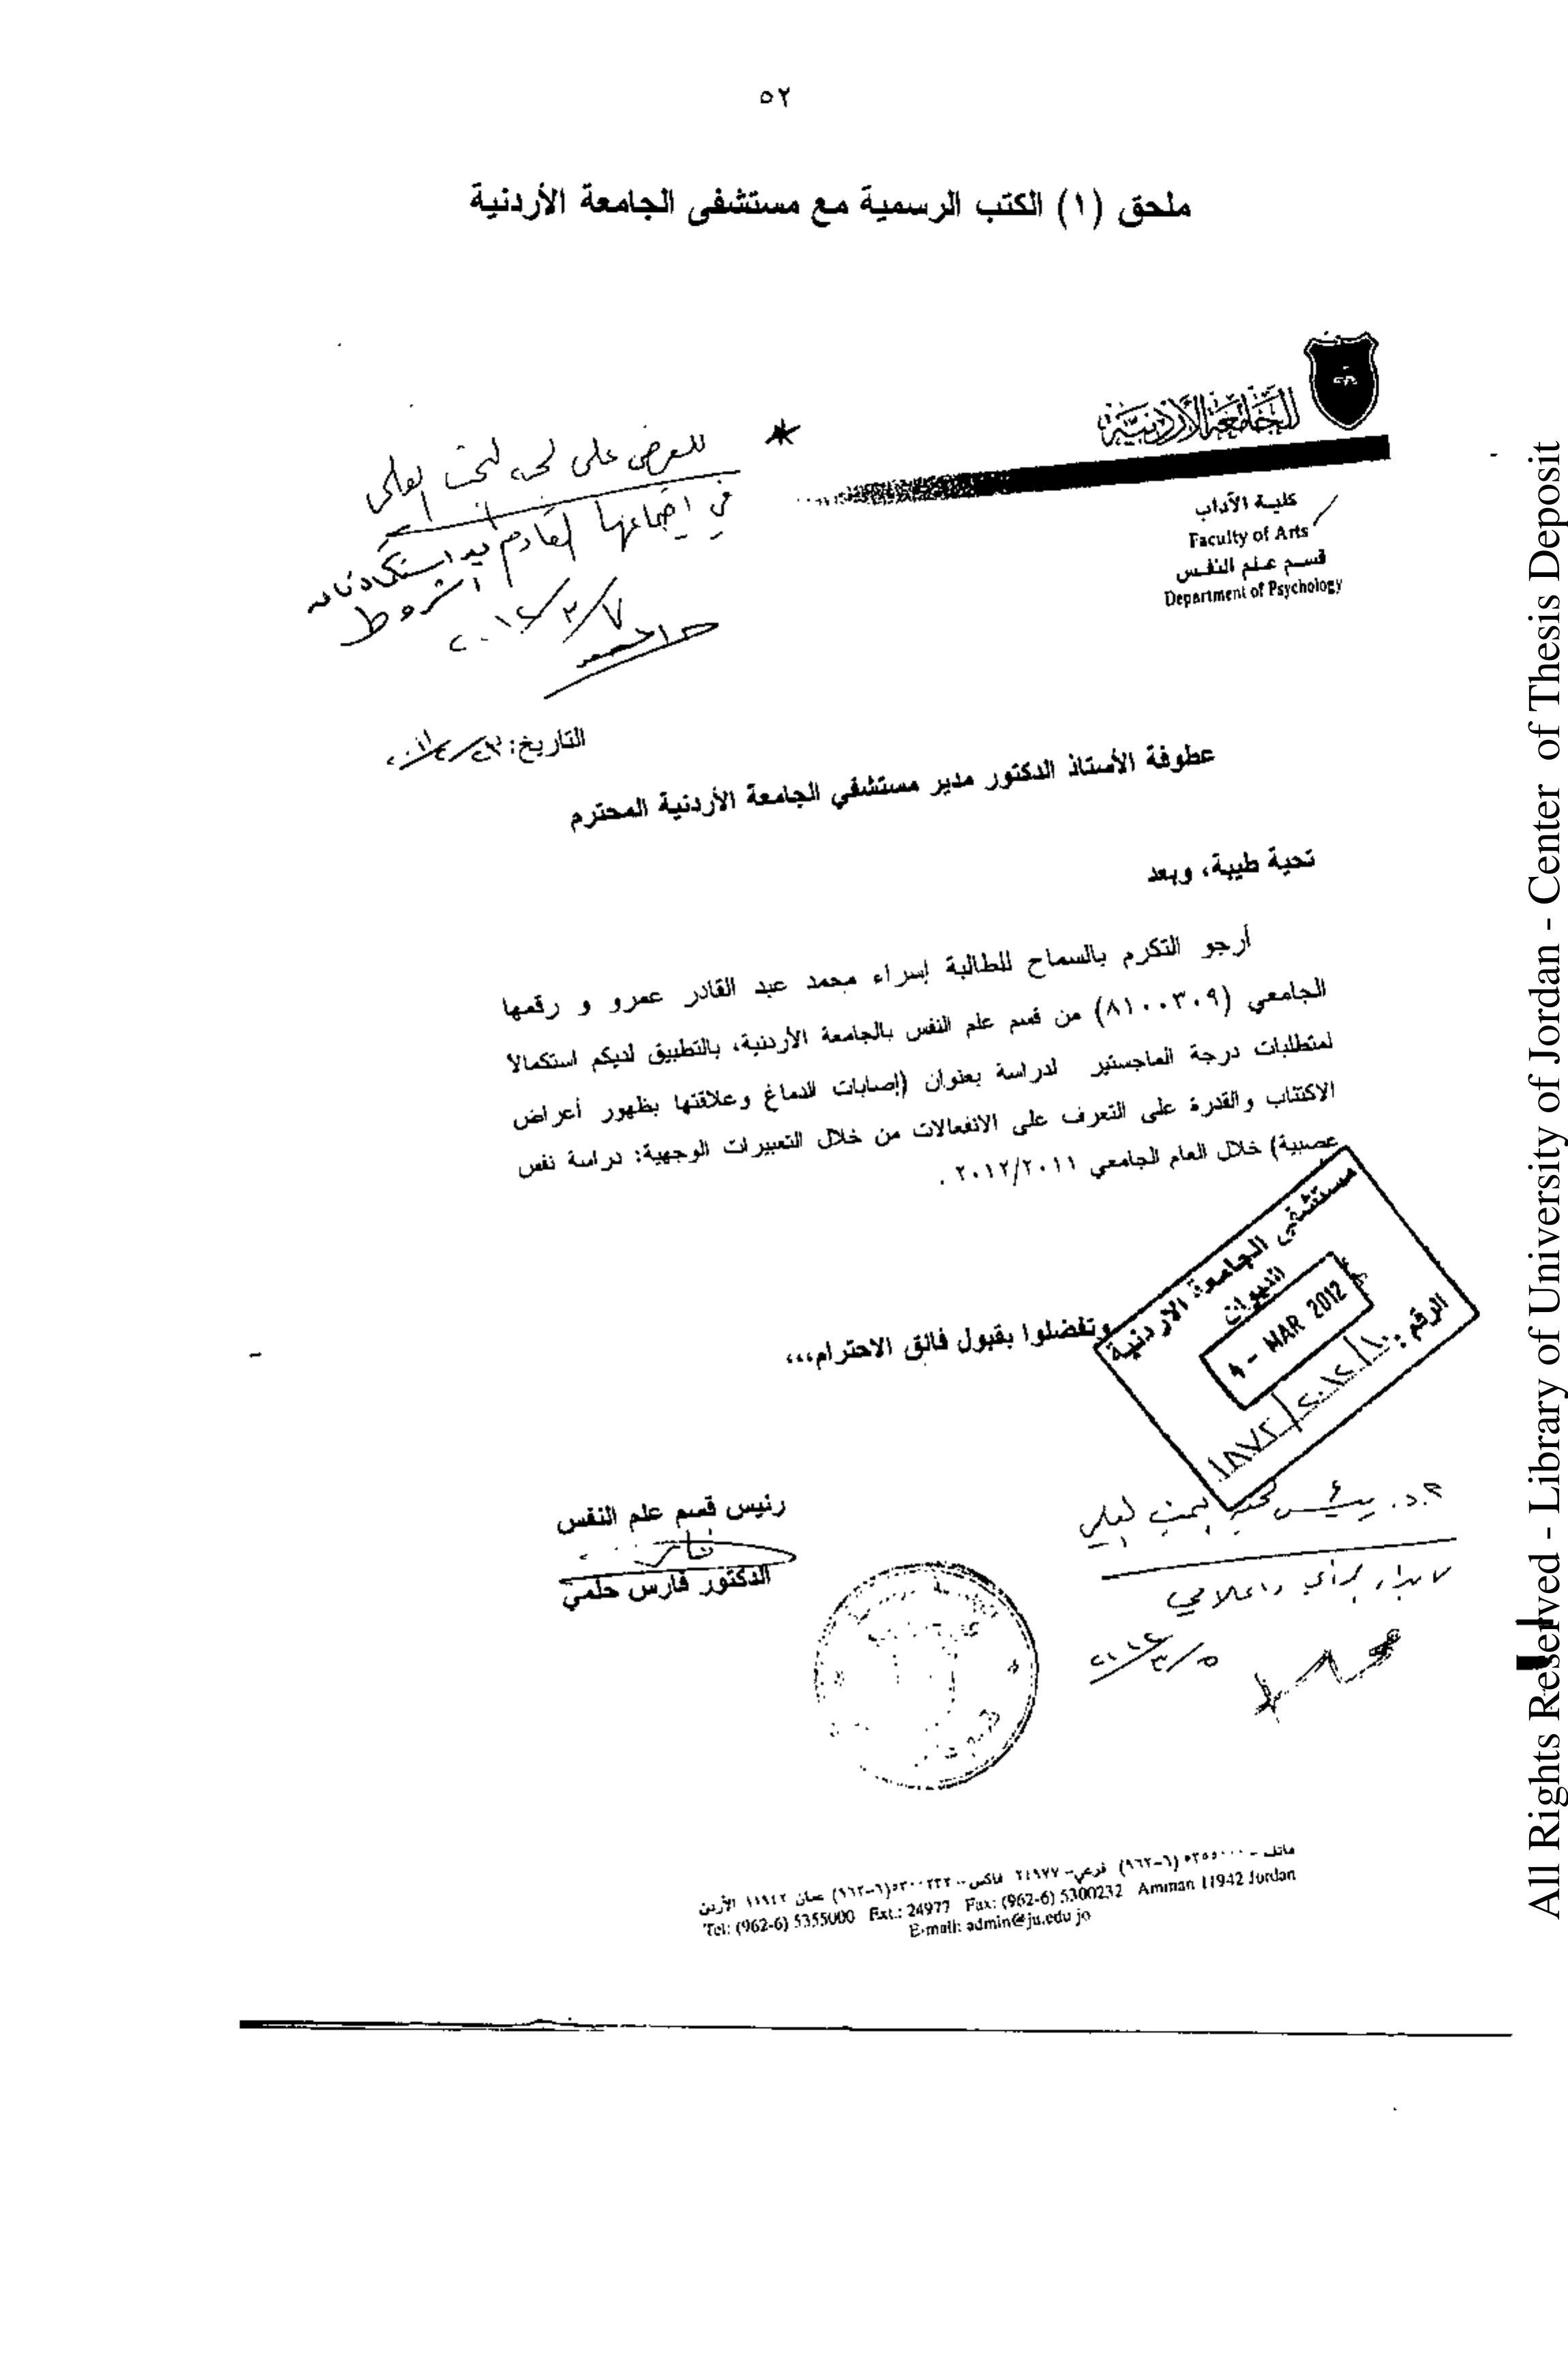 ٥٢
ملحق (١) الكتب الرسمية مع مستشفى الجامعة الأردنية
الجامعة الأردنية
كلية الآداب
Faculty of Arts
قسم علم النفس
Department of Psychology
للعرض على لجنة البحث العلمي
في اجتماعها القادم بعد استكمال كافة
الشروط
٢٠١٢/٣/٧
التاريخ:
عطوفة الأستاذ الدكتور مدير مستشفي الجامعة الأردنية المحترم
تحية طيبة، وبعد
أرجو التكرم بالسماح للطالبة إسراء محمد عبد القادر عمرو و رقمها
الجامعي (٨١٠٠٣٠٩) من قسم علم النفس بالجامعة الأردنية، بالتطبيق لديكم استكمالا
لمتطلبات درجة الماجستير لدراسة بعنوان (إصابات الدماغ وعلاقتها بظهور أعراض
الاكتئاب والقدرة على التعرف على الانفعالات من خلال التعبيرات الوجهية: دراسة نفس
عصبية) خلال العام الجامعي ٢٠١٢/٢٠١١ .
وتفضلوا بقبول فائق الاحترام،،،
مستشفى الجامعة الاردنية
الديوان
4 - MAR 2012
الرقم : ١٠/٢٠١٢/١٨٧٢
رئيس قسم علم النفس
الدكتور فارس حلمي
أ.د. رئيس لجنة البحث العلمي
لابداء الرأي واعلامي
٢٠١٢/٣/٥
هاتف - ٥٣٥٥٠٠٠ (٦-٩٦٢) فرعي- ٢٤٩٧٧ فاكس - ٥٣٠٠٢٣٢(٦-٩٦٢) عمان ١١٩٤٢ الأردن
Tel: (962-6) 5355000 Ext.: 24977 Fax: (962-6) 5300232 Amman 11942 Jordan
E-mail: admin@ju.edu jo
All Rights Reserved - Library of University of Jordan - Center of Thesis Deposit